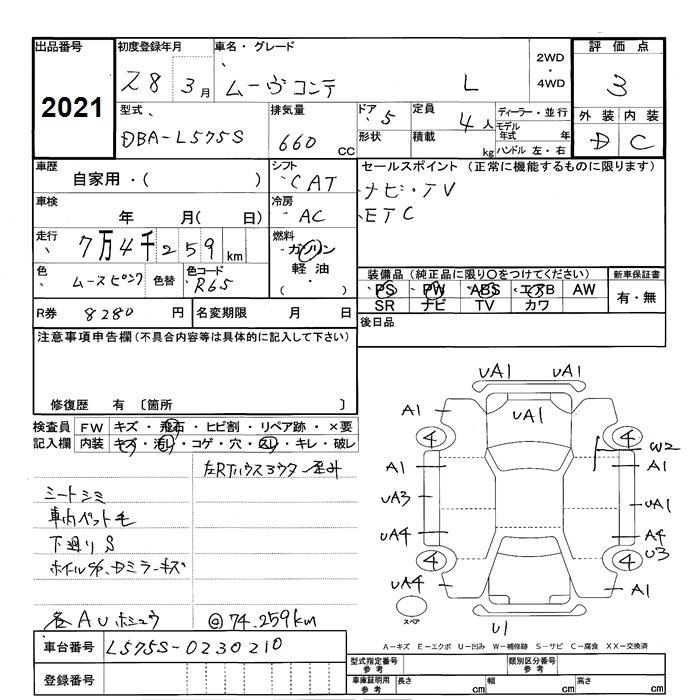 出品番号 初度登録年月 車名・グレード 2WD・4WD 評価点
2021 28 3月 ムーヴコンテ L 3
型式 排気量 ドア 5 定員 4人 ディーラー・並行 外装 内装
DBA-L575S 660 cc 形状 積載 kg モデル年式 年 D C
ハンドル 左・右
車歴 シフト セールスポイント (正常に機能するものに限ります)
自家用・( ) CAT ナビ・TV
車検 冷房 ETC
年 月( 日) AC
走行 燃料
7万4千259km ガソリン
軽油
・( )
色 色替 色コード 装備品(純正品に限り○をつけてください) 新車保証書
ムースピンク R65 PS PW ABS エアB AW 有・無
SR ナビ TV カワ
R券 8280円 名変期限 月 日
後日品
注意事項申告欄(不具合内容等は具体的に記入して下さい)
修復歴 有 〔箇所 〕
検査員 FW キズ・飛石・ヒビ割・リペア跡・×要
記入欄 内装 キズ・汚れ・コゲ・穴・スレ・キレ・破レ
シートシミ
車内ペット毛
下廻りS
各AUホシュウ @74.259km
uA1 uA1
A1 uA1 A1
4 4
W2
A1 A1
uA3 uA1
uA4 A4
4 4 U3
uA4 A1
スペア
U1
A-キズ E-エクボ U-凹み W-補修跡 S-サビ C-腐食 XX-交換済
車台番号 L575S-0230210
登録番号
型式指定番号 参考 類別区分番号 参考
車庫証明用 参考 長さ cm 幅 cm 高さ cm